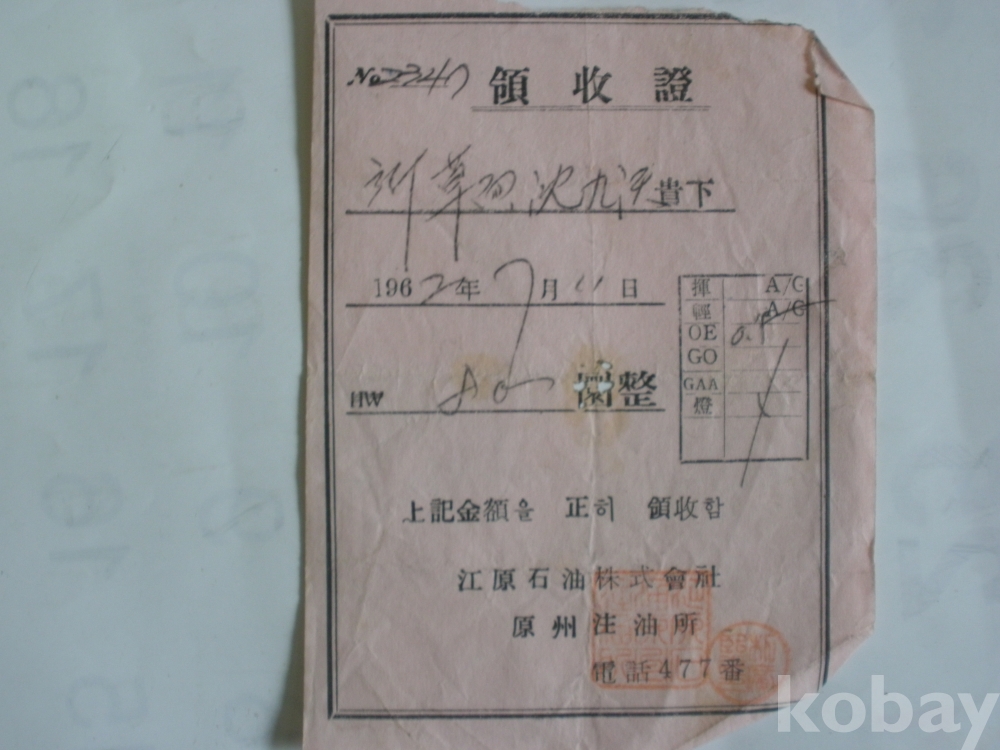 No 2347 領收證
沈九 貴下
1962年 7月 11日
揮 A/G
輕 A/G
OE
GO
GAA
燈
HW 整
上記金額을 正히 領收함
江原石油株式會社
原州注油所
電話477番
kobay